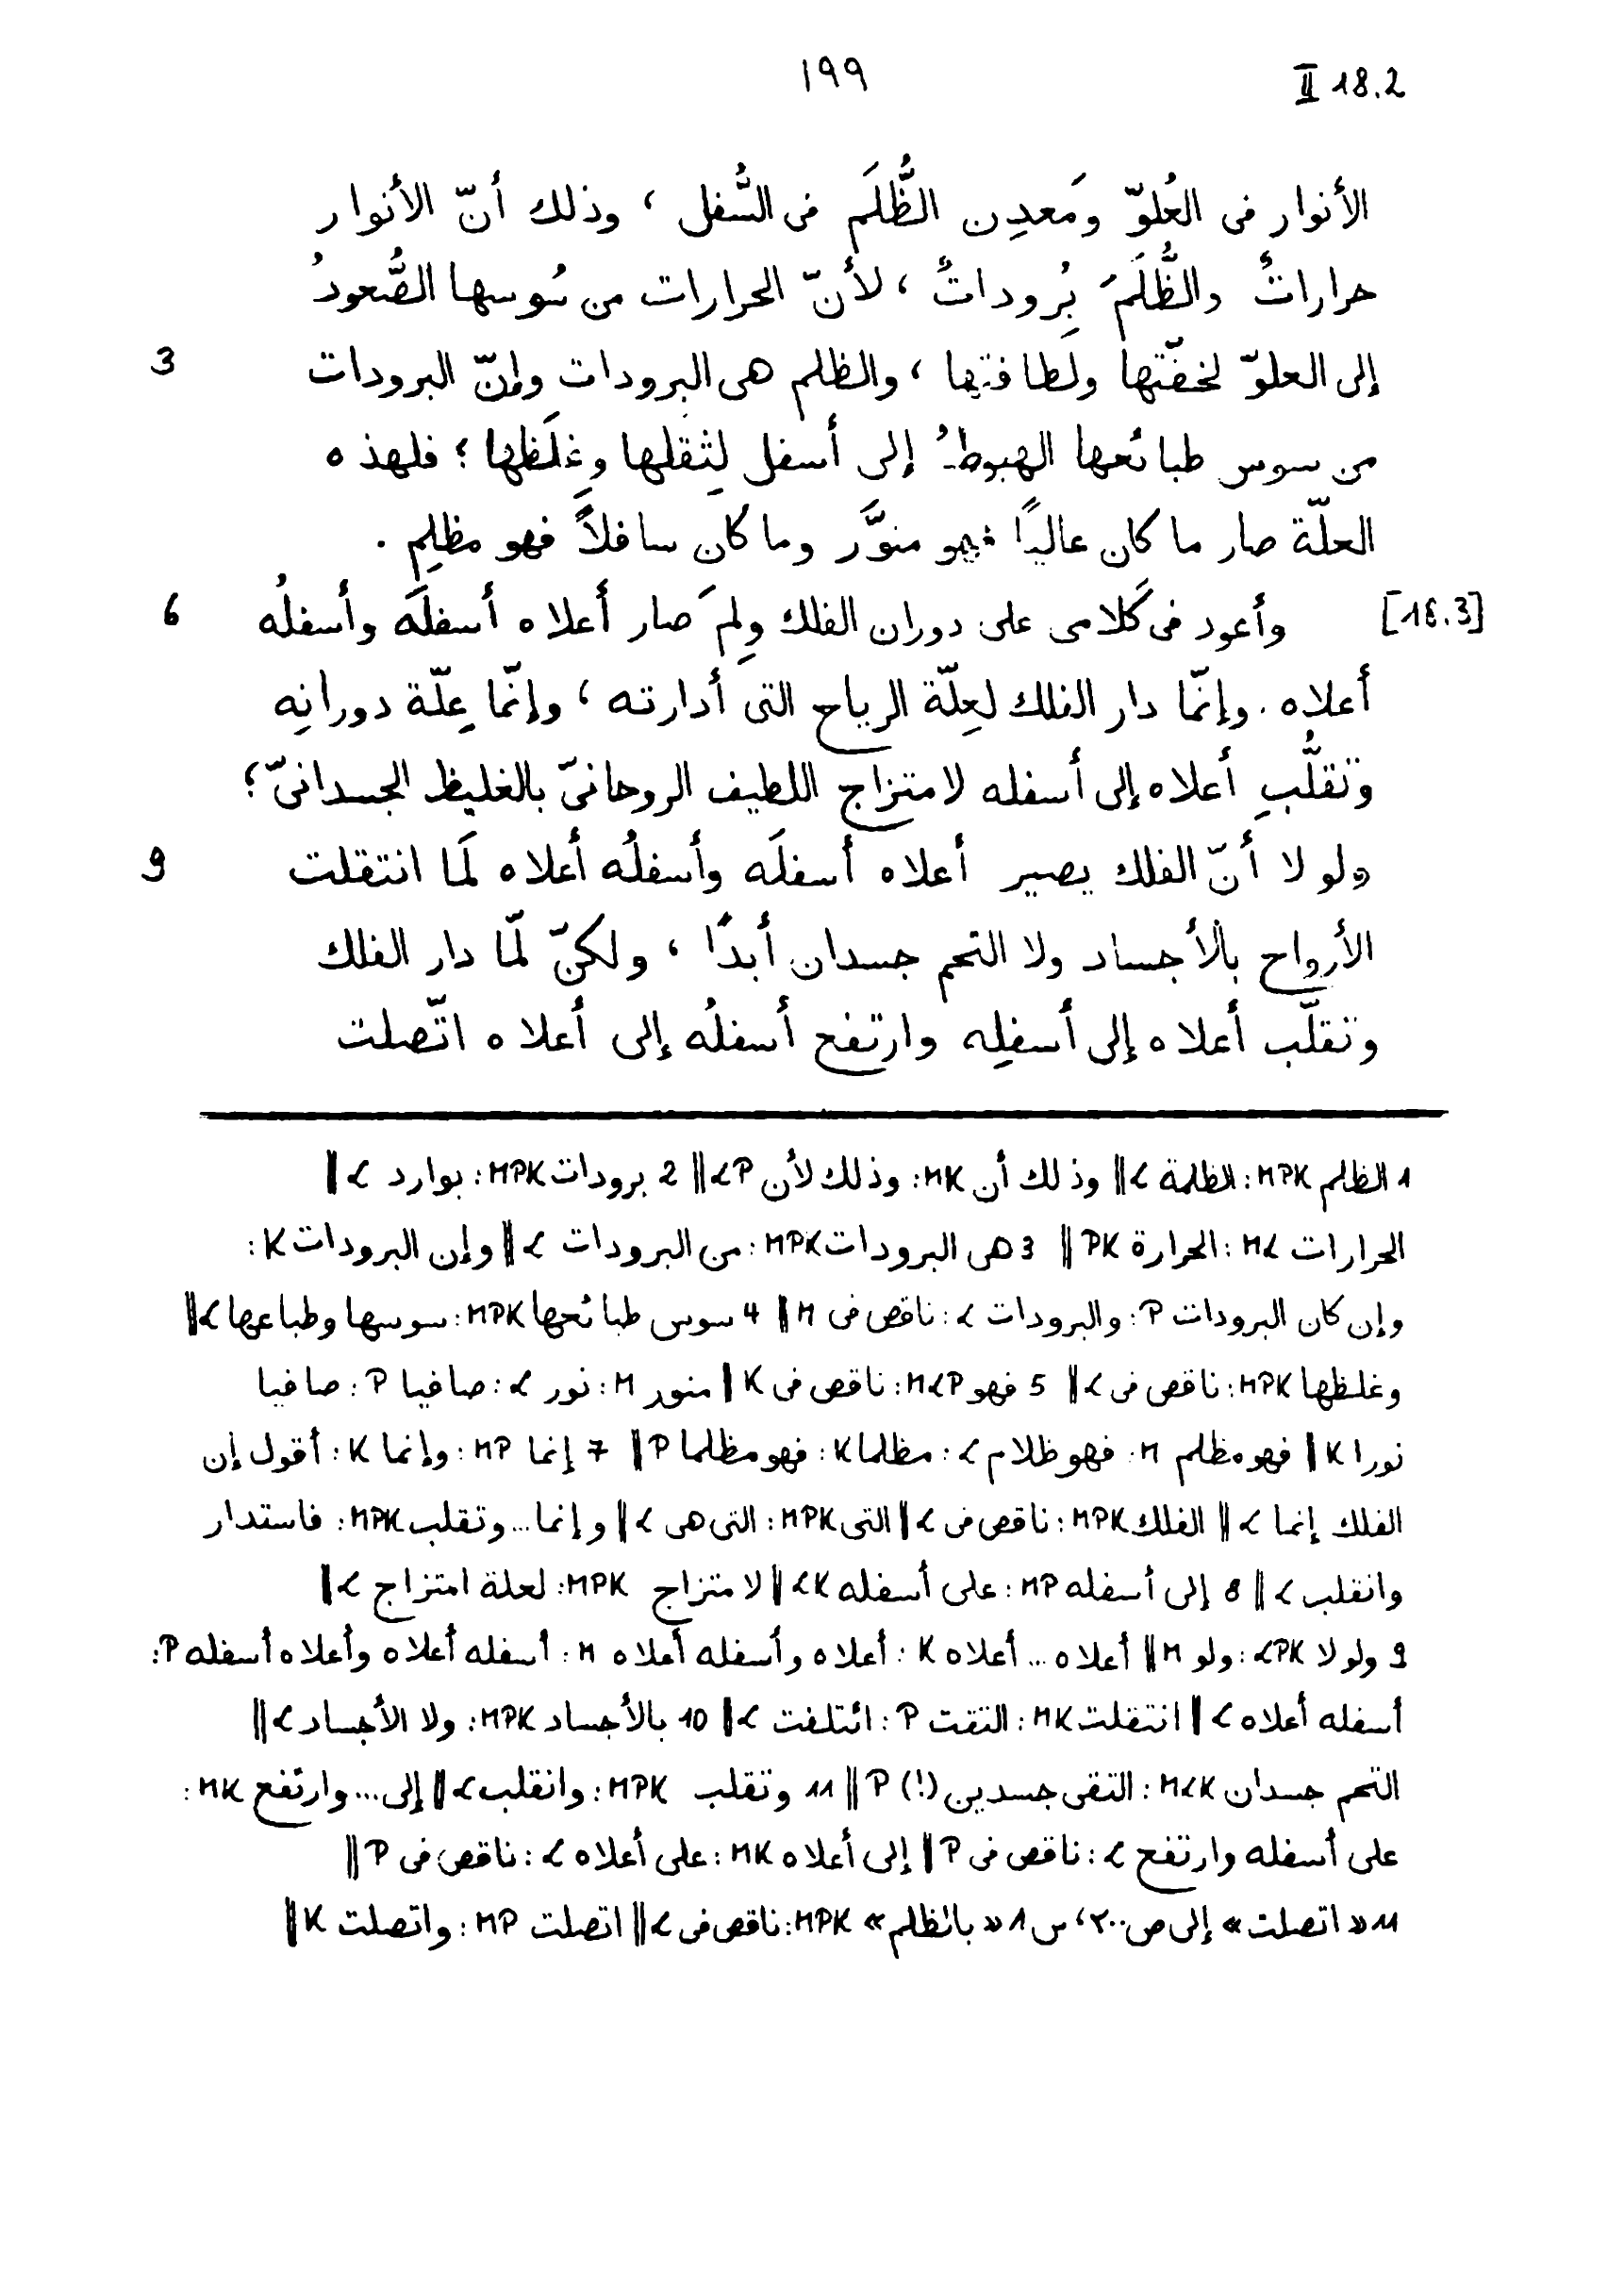 ١٩٩ II 18.2
الأنوار فى العُلوّ ومَعدِن الظُّلَم فى السُّفل ، وذلك أنّ الأنوار
حراراتٌ والظُّلَمَ بُروداتٌ ، لأنّ الحرارات من سُوسها الصُّعودُ
إلى العلوّ لخفّتها ولطافتها ، والظلم هى البرودات وإنّ البرودات 3
من سوس طبائعها الهبوطُ إلى أسفل لِثقلها وغِلَظها ؛ فلهذه
العلّة صار ما كان عاليًا فهو منوَّر وما كان سافلاً فهو مظلِم .
[18.3] وأعود فى كَلامى على دوران الفلك ولِمَ صار أعلاه أسفلَه وأسفلُه 6
أعلاه . وإنّما دار الفلك لعِلّة الرياح التى أدارته ، وإنّما عِلّة دورانِه
وتقلُّبِ أعلاه إلى أسفله لامتزاج اللطيف الروحانىّ بالغليظ الجسدانىّ ؛
ولو لا أنّ الفلك يصير أعلاه أسفلَه وأسفلُه أعلاه لَمَا انتقلت 9
الأرواح بالأجساد ولا التحم جسدان أبدًا ، ولكنّ لمّا دار الفلك
وتقلّب أعلاه إلى أسفلِه وارتفع أسفلُه إلى أعلاه اتّصلت
1 الظلم MPK : الظلمة L || وذلك أن MK : وذلك لأن LP || 2 برودات MPK : بوارد L ||
الحرارات ML : الحرارة PK || 3 هى البرودات MPK : من البرودات L || وإن البرودات K :
وإن كان البرودات P : والبرودات L : ناقص فى M || 4 سوس طبائعها MPK : سوسها وطباعها L ||
وغلظها MPK : ناقص فى L || 5 فهو MLP : ناقص فى K || منور M : نور L : صافيا P : صافيا
نورا K || فهو مظلم M : فهو ظلام L : مظلما K : فهو مظلما P || 7 إنما MP : وإنما K : أقول إن
الفلك إنما L || الفلك MPK : ناقص فى L || التى MPK : التى هى L || وإنما ... وتقلب MPK : فاستدار
وانقلب L || 8 إلى أسفله MP : على أسفله LK || لامتزاج MPK : لعلة امتزاج L ||
9 ولو لا LPK : ولو M || أعلاه ... أعلاه K : أعلاه وأسفله أعلاه M : أسفله أعلاه وأعلاه أسفله P :
أسفله أعلاه L || انتقلت MK : التقت P : ائتلفت L || 10 بالأجساد MPK : ولا الأجساد L ||
التحم جسدان MLK : التقى جسدين (!) P || 11 وتقلب MPK : وانقلب L || إلى ... وارتفع MK :
على أسفله وارتفع L : ناقص فى P || إلى أعلاه MK : على أعلاه L : ناقص فى P ||
11 « اتصلت » إلى ص ٢٠٠ ، س 1 « بالظلم » MPK : ناقص فى L || اتصلت MP : واتصلت K ||